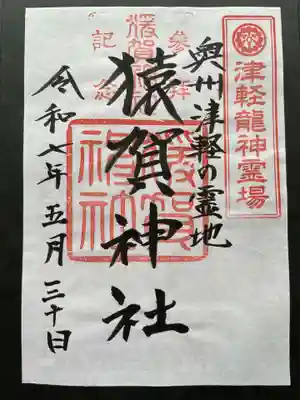 津軽龍神霊場
奥州津軽の霊地
参拝
記念
猿賀神社
令和七年五月三十日